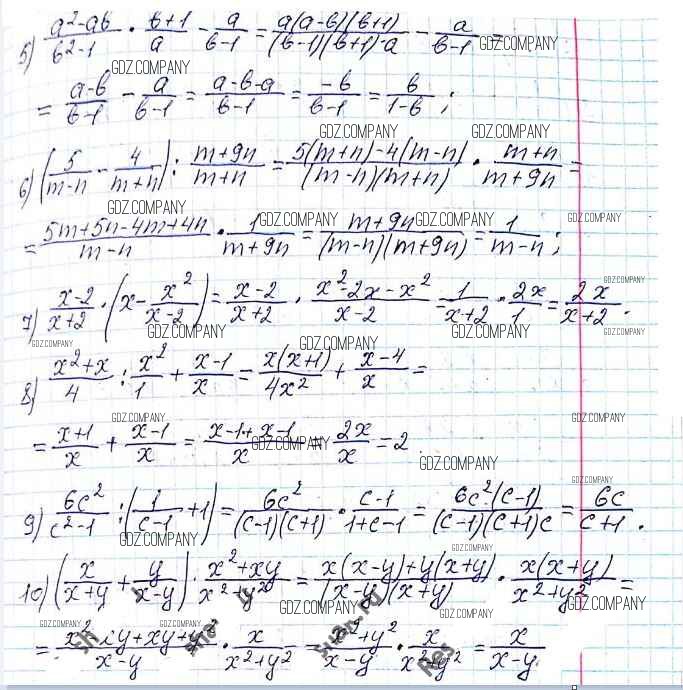 5) (a²-ab)/(b²-1) · (b+1)/a - a/(b-1) = (a(a-b)(b+1))/((b-1)(b+1)·a) - a/(b-1) =
GDZ.COMPANY
GDZ.COMPANY
= (a-b)/(b-1) - a/(b-1) = (a-b-a)/(b-1) = (-b)/(b-1) = b/(1-b);
GDZ.COMPANY GDZ.COMPANY
6) (5/(m-n) - 4/(m+n)) : (m+9n)/(m+n) = (5(m+n)-4(m-n))/((m-n)(m+n)) · (m+n)/(m+9n) =
GDZ.COMPANY
= (5m+5n-4m+4n)/(m-n) · 1/(m+9n) = (m+9n)/((m-n)(m+9n)) = 1/(m-n);
GDZ.COMPANY GDZ.COMPANY GDZ.COMPANY
GDZ.COMPANY
7) (x-2)/(x+2) · (x - x²/(x-2)) = (x-2)/(x+2) · (x²-2x-x²)/(x-2) = 1/(x+2) · 2x/1 = 2x/(x+2).
GDZ.COMPANY GDZ.COMPANY GDZ.COMPANY
GDZ.COMPANY GDZ.COMPANY
8) (x²+x)/4 : x²/1 + (x-1)/x = (x(x+1))/(4x²) + (x-4)/x =
GDZ.COMPANY GDZ.COMPANY
= (x+1)/x + (x-1)/x = (x-1+x-1)/x = 2x/x = 2.
GDZ.COMPANY
GDZ.COMPANY
GDZ.COMPANY
9) 6c²/(c²-1) : (1/(c-1) + 1) = 6c²/((c-1)(c+1)) · (c-1)/(1+c-1) = (6c²(c-1))/((c-1)(c+1)c) = 6c/(c+1).
GDZ.COMPANY
GDZ.COMPANY
10) (x/(x+y) + y/(x-y)) · (x²+xy)/(x²+y²) = (x(x-y)+y(x+y))/((x-y)(x+y)) · (x(x+y))/(x²+y²) =
GDZ.COMPANY GDZ.COMPANY
GDZ.COMPANY GDZ.COMPANY GDZ.COMPANY
= (x²-xy+xy+y²)/(x-y) · x/(x²+y²) = (x²+y²)/(x-y) · x/(x²+y²) = x/(x-y).